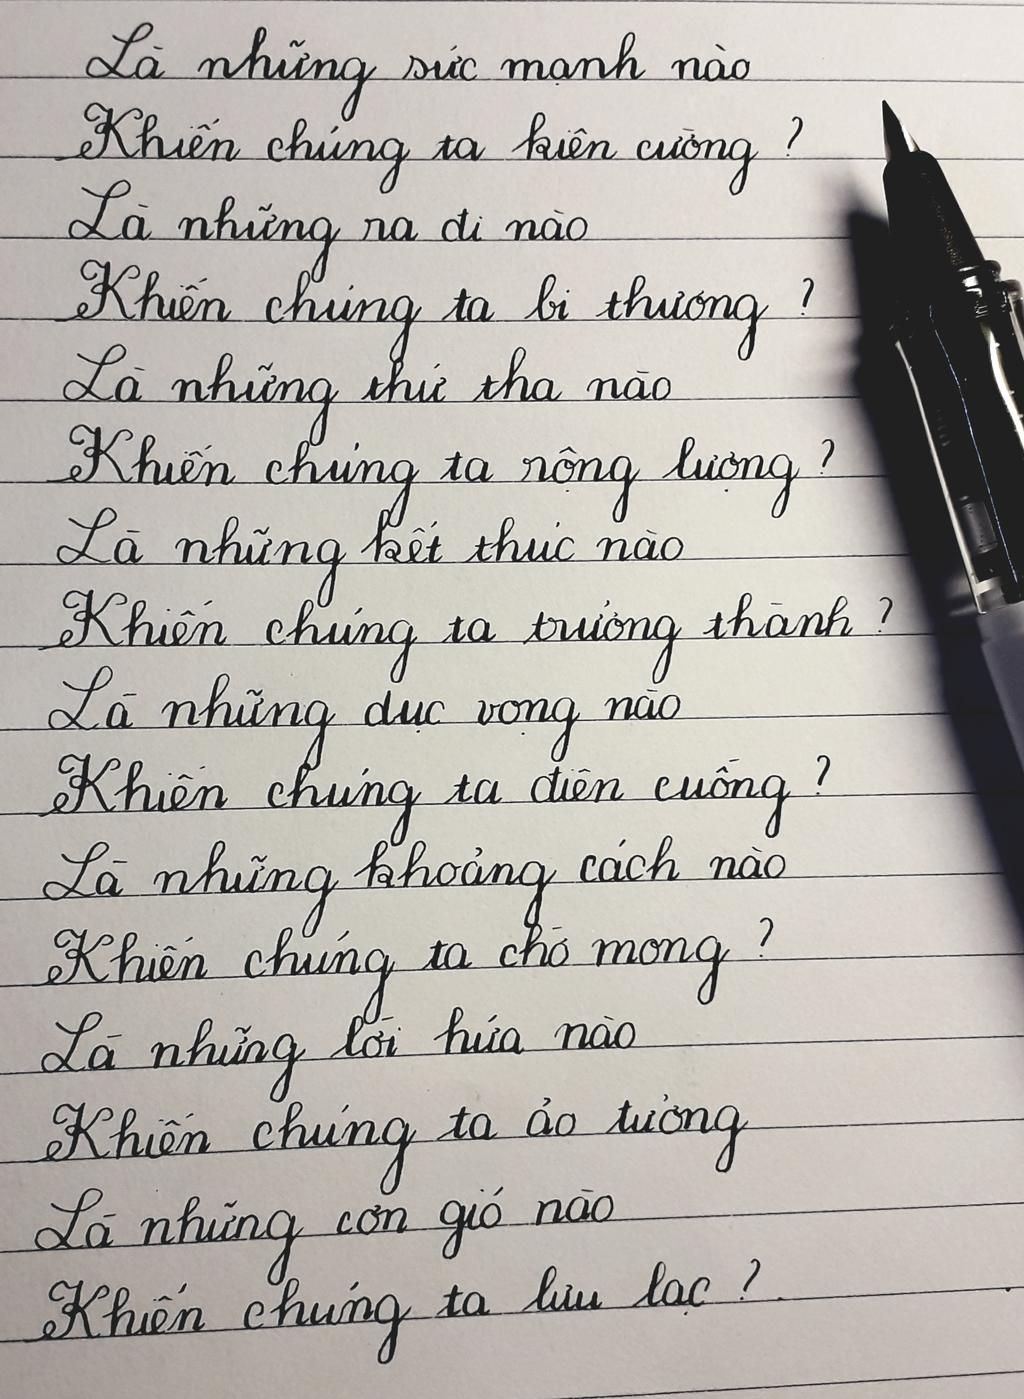 Là những sức mạnh nào
Khiến chúng ta kiên cường ?
Là những ra đi nào
Khiến chúng ta bi thương ?
Là những thứ tha nào
Khiến chúng ta rộng lượng ?
Là những kết thúc nào
Khiến chúng ta trưởng thành ?
Là những dục vọng nào
Khiến chúng ta điên cuồng ?
Là những khoảng cách nào
Khiến chúng ta chờ mong ?
Là những lời hứa nào
Khiến chúng ta ảo tưởng
Là những cơn gió nào
Khiến chúng ta lưu lạc ?